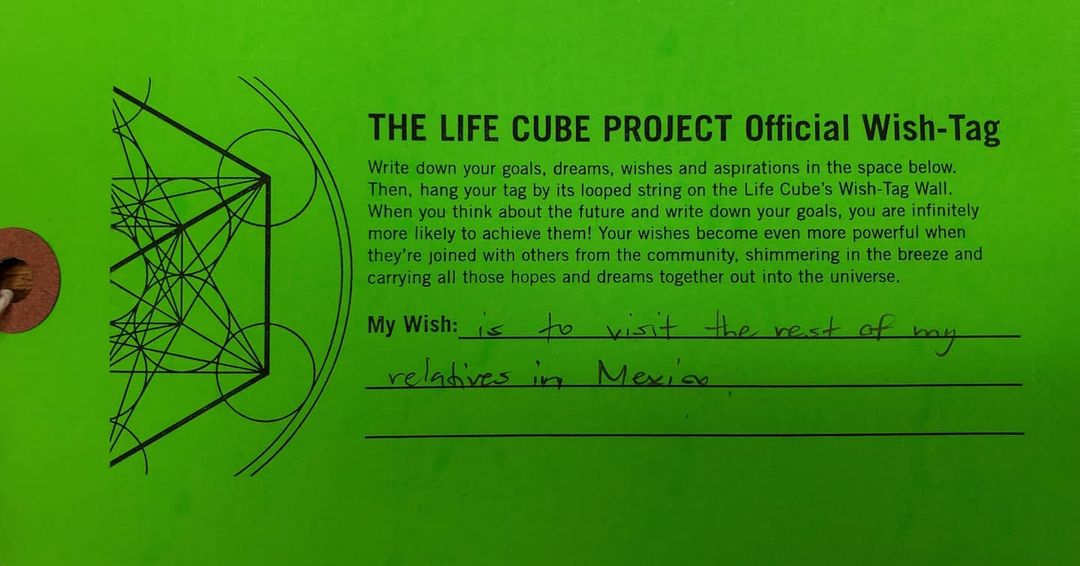 THE LIFE CUBE PROJECT Official Wish-Tag
Write down your goals, dreams, wishes and aspirations in the space below.
Then, hang your tag by its looped string on the Life Cube's Wish-Tag Wall.
When you think about the future and write down your goals, you are infinitely
more likely to achieve them! Your wishes become even more powerful when
they're joined with others from the community, shimmering in the breeze and
carrying all those hopes and dreams together out into the universe.
My Wish: is to visit the rest of my
relatives in Mexico